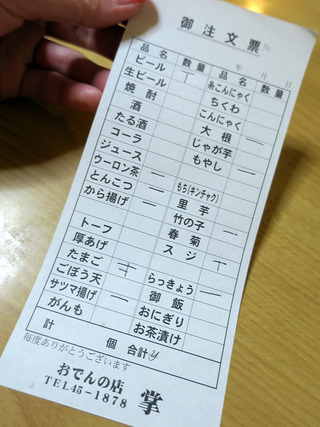 御注文票
年 月 日
品名 数量 品名 数量
ビール 糸こんにゃく
生ビール ちくわ
焼酎 こんにゃく
酒 大根
たる酒 じゃが芋
コーラ もやし
ジュース
ウーロン茶 もち(キンチャク)
とんこつ 里芋
から揚げ 竹の子
春菊
トーフ スジ
厚あげ
たまご らっきょう
ごぼう天 御飯
サツマ揚げ おにぎり
がんも お茶漬け
計 個 合計
毎度ありがとうございます
おでんの店 掌
TEL45-1878